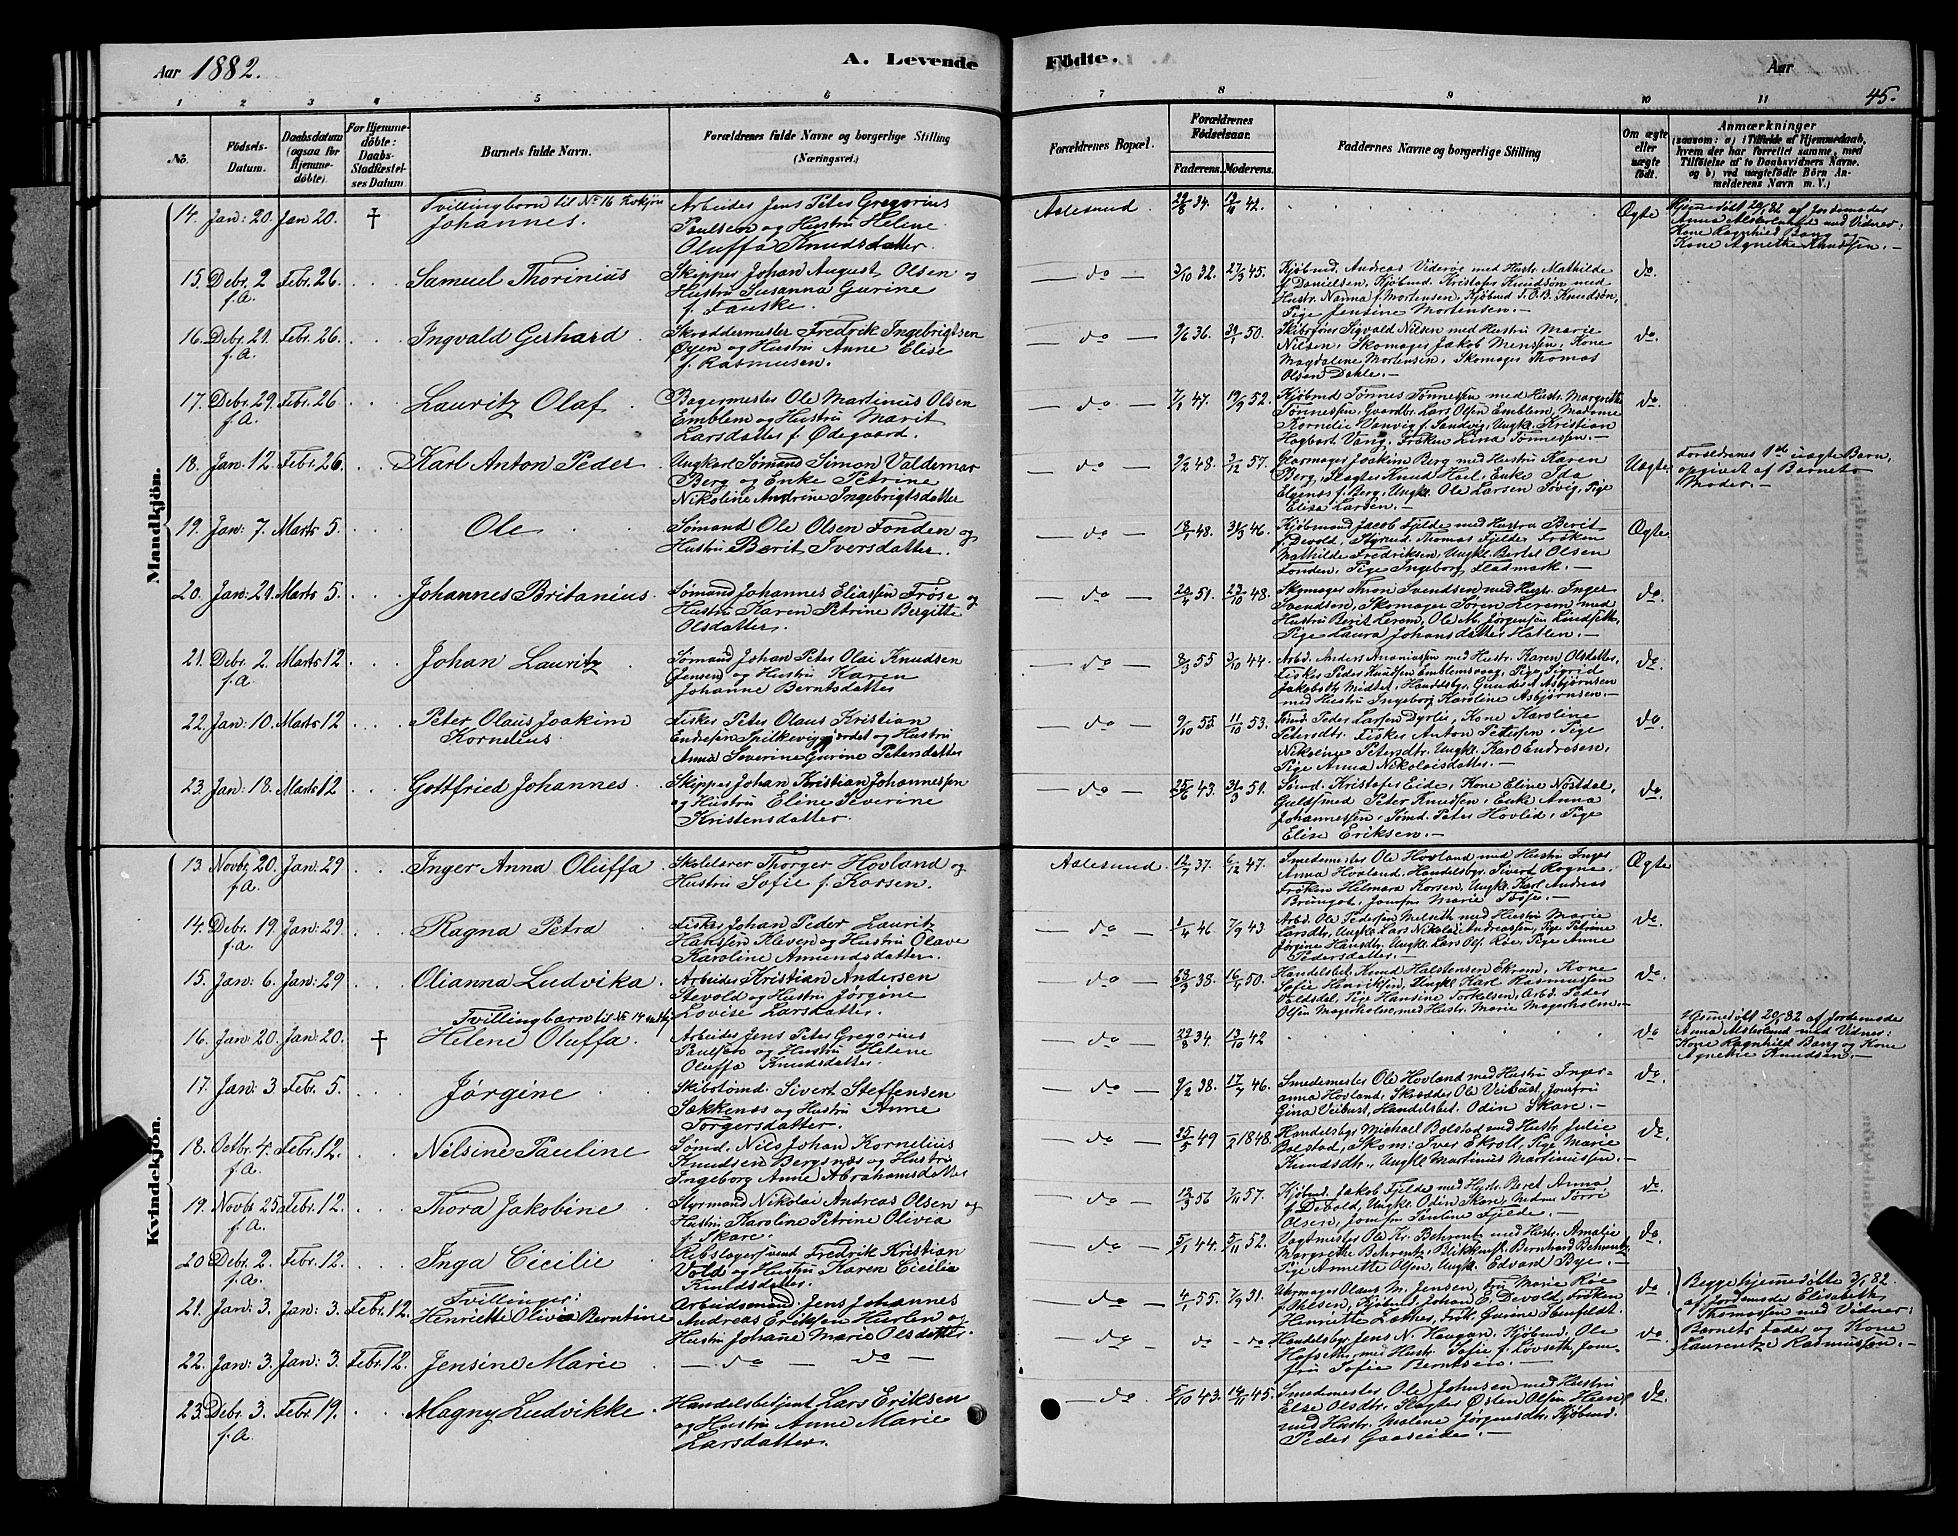 Aar 1882.
A. Levende
Födte.
Aar
45.
1 2 3 4 5 6 7 8 9 10 11
No.
Födsels-Datum.
Daabsdatum (ogsaa for Hjemme-döbte).
For Hjemme-döbte: Daabs-Stadfæstel-ses Datum
Barnets fulde Navn.
Forældrenes fulde Navne og borgerlige Stilling (Næringsvei.)
Forældrenes Bopæl.
Forældrenes Födselsaar.
Faderens. Moderens.
Faddernes Navne og borgerlige Stilling
Om ægte eller uægte födt.
Anmærkninger
(saasom: a) i Tilfælde af Hjemmedaab,
hvem der har forrettet samme, med
Tilföielse af to Daabsvidners Navne,
og b) ved uægtefödte Börn An-
melderens Navn m. V.)
Mandkjön.
14. Jan: 20. Jan 20. † Tvillingbarn til No 16 Kvkjön
Johannes.
Arbeider Jens Peter Gregorius
Paulsen og Hustru Helene
Oluffa Knudsdatter.
Aalesund 22/8 34. 13/10 42. Ægte
Hjemmedöbt 20/1 82 af Jordemoder
Anna Alsterlund med Vidner:
Kone Ragnhild Bang og
Kone Agnethe Knudsen.
15. Debr. 2 f.A. Febr. 26. Samuel Thorinius
Skipper Johan August Olsen og
Hustru Susanna Gurine
f. Fauske
do 3/10 32. 27/9 45.
Kjøbmd. Andreas Viderøe med Hustr. Mathilde
f Danielsen, Kjøbmd. Kristofer Knudsøn med
Hustr. Nanna f. Mortensen, Kjøbmd T.O.B. Knudsøn,
Pige Jensine Mortensen.
do.
16. Debr. 21. f.A. Febr. 26. Ingvald Gerhard
Skræddermester Fredrik Ingebrigtsen
Øyen og Hustru Anne Elise
f. Rasmussen.
do 9/6 36. 50.
Skibsfører Sigvald Nilsen med Hustru Marie
Nilsen, Skomager Jakob Menssen, Kone
Magdalene Mortensen, Skomager Thomas
Olsen Dahle.
do.
17. Debr. 29. f.A. Febr. 26 Lauritz Olaf
Bagermester Ole Martinus Olsen
Emblem og Hustru Marit
Larsdatter f. Ødegaard.
do 47. 19/9 52.
Kjøbmd Tønnes Tønnesen med Hustr. Margrethe
Tønnessen, Gaardbr. Lars Olsen Emblem, Madame
Kornelie Vanvig f. Sandvig, Ungk. Kristian
Hagbart Vang, Frøken Lina Tønnessen.
do.
18. Jan: 12 Febr. 26. Karl Anton Peder
Ungkarl Sømand Simon Valdemar
Berg og Enke Petrine
Nikoline Andrine Ingebrigtsdatter
do 9/2 48. 3/12 57.
Glarmager Joakim Berg med Hustru Karen
Berg, Slagter Knud Hoel, Enke Ida
Elgenes f. Berg, Ungk. Ole Larsen Søvig, Pige
Elisa Larsen.
Uægte.
Forældrenes 1ste uægte Barn,
opgivet af Barnets
Moder.
19. Jan: 7. Marts 5. Ole
Sømand Ole Olsen Fonden og
Hustru Berit Iversdatter.
do 18/1 48. 31/3 46.
Kjøbmand Jacob Fjelde med Hustru Berit
f. Devold, Styrmd. Thomas Fjelde, Frøken
Mathilde Fredriksen, Ungk. Bertel Olsen
Fonden, Pige Ingeborg Fladmark.
Ægte
20. Jan: 21. Marts 5. Johannes Britanius.
Sømand Johannes Eliassen Frøse og
Hustru Karen Petrine Bergitte
Olsdatter.
do 20/4 51. 23/10 48.
Skomager Thron Svendsen med Hustr. Inger
Svendsen, Skomager Søren Lerem med
Hustru Berit Lerem, Ole M. Jørgensen Lindseth,
Pige Laura Johansdatter Hatlen.
do.
21. Debr. 2. f.A. Marts 12 Johan Lauritz
Sømand Johan Peter Olai Knudsen
(Jensen) og Hustru Karen
Johanne Berntsdatter
do 8/3 55 3/10 44.
Arbd. Anders Ananiassen med Hustr. Karen Olsdatter,
Fisker Peder Knudsen Emblemsvaag, Pige Sigrid
Jakobsdtr Midbøl, Handelsbgr. Gunder Asbjørnsen
med Hustru Ingeborg Karoline Asbjørnsen.
do
22. Jan: 10. Marts 12 Peter Olaus Joakim
Kornelius.
Fisker Peter Olaus Kristian
Endresen Spilkeviggjerdet og Hustru
Anna Severine Gurine Petersdatter
do 9/10 55 11/10 53.
Sømd. Peder Larsen Dyrli, Kone Karoline
Petersdtr. Fisker Anton Petersen, Pige
Nikoline Petersdtr. Ungk. Karl Endresen,
Pige Anna Nikolaisdatter.
do.
23. Jan: 18. Marts 12 Gottfried Johannes
Skipper Johan Kristian Johannessen
og Hustru Eline Severine
Kristensdatter.
do 25/6 43. 31/3 51.
Sømd. Kristofer Eide, Kone Eline Nøstdal,
Guldsmed Peter Knudsen, Enke Anna
Johannessen, Sømd. Peter Hovlid, Pige
Elise Eriksen.
do.
Kvindekjön.
13. Novbr. 20. f.A. Jan: 29 Inger Anna Oluffa
Skolelærer Thorger Hovland og
Hustru Sofie f. Korsen.
Aalesund. 12/7 37. 6/12 47.
Smedemester Ole Hovland med Hustru Inger
Anna Hovland, Handelsbgr. Sivert Rogne,
Frøken Helmara Korsen, Ungk. Karl Andreas
Brungot, Jomfru Marie Tøsse.
Ægte
14. Debr. 19. f.A. Jan: 29. Ragna Petra
Fisker Johan Peder Lauritz
Hakssen Kleven og Hustru Olave
Karoline Amundsdatter.
do 1/4 46. 7/9 43.
Arbd. Ole Pedersen Melseth med Hustru Marie
Larsdtr, Ungk. Lars Nikolai Andreassen, Pige Petrine
Jørgine Hansdtr. Ungk. Lars Ols. Røe, Pige Anne
Pedersdatter.
do
15. Jan: 6. Jan: 29 Olianna Ludvika.
Arbeider Kristian Andersen
Stevold og Hustru Jørgine
Lovise Larsdatter.
do 23/3 38. 50.
Handelsbet. Knud Halstensen Ekrem, Kone
Sofie Henriksen, Ungk. Karl Rasmussen
Eldsdal, Pige Hansine Torkelsen, Arbd. Peder
Olsen Magerholm, med Hustr. Marie Magerholm.
do.
16. Jan: 20. Jan: 20. † Tvillingbarn til No 14
Helene Oluffa.
Arbeider Jens Peter Gregorius
Paulsen og Hustru Helene
Oluffa Knudsdatter.
do 22/8 34. 13/10 42 do
Hjemmedöbt 20/1 82 af Jordemoder
Anna Alsterlund med Vidner:
Kone Ragnhild Bang og Kone
Agnethe Knudsen.
17. Jan: 3. Febr. 5. Jørgine
Skibstømd. Sivert Steffensen
Søkkenæs og Hustru Anne
Torgersdatter.
do 9/2 38. 17/7 46.
Smedemester Ole Hovland med Hustru Inger-
anna Hovland, Skrædder Ole Veibust, Jomfru
Gina Veibust, Handelsbet. Odin Skare.
do.
18. Octbr. 4. f.A. Febr. 12. Nilsine Pauline
Sømd. Nils Johan Kornelius
Knudsen Bergsnæs og Hustru
Ingeborg Anne Abrahamsdatter
do 25/5 49 1848.
Handelsbgr Michael Bolstad med Hustr. Julie
Bolstad, Skom: Iver Ekroll, Pige Marie
Knudsdtr., Ungk. Martinus Martinussen.
do.
19. Novbr 25 f.A. Febr. 12. Thora Jakobine
Styrmand Nikolai Andreas Olsen og
Hustru Karoline Petrine Olivia
f. Skare.
do 13/3 56 7/11 57.
Kjøbmd. Jakob Fjelde med Hustr. Beret Anna
f. Devold, Ungk. Odin Skare, Madme Torri
Olsen, Jomfru Pauline Fjelde.
do
20. Debr. 2. f.A. Febr. 12. Inga Cicilie
Rebslagersvend Fredrik Kristian
Vold og Hustru Karen Cicilie
Knudsdatter.
do 5/1 44. 5/11 52.
Vagtmester Ole Kr. Behrentz med Hustr. Amalie
Margrethe Behrentz, Blikkensl. Bernhard Behrentz,
Pige Annette Olsen, Ungk. Edvard Bye.
do.
21. Jan: 3. Jan: 3. Febr. 12. Tvillinger:
Henriette Olivia Berntine
Arbeidsmand Jens Johannes
Andreas Eriksen Hurlen og
Hustru Johane Marie Olsdatter.
do 4/1 55. 7/9 51.
Uhrmager Olaus M. Jensen, Fru Marie Røe
f. Ohlsen, Kjøbmd. Johan E. Devold, Frøken
Henriette Lathes, Frk. Gurine Stenfeldt.
do.
Begge hjemmedöbte 3/1 82.
af Jordmoder Elisabeth
Thomassen med Vidner:
Barnets Fader og Kone
Laurentze Rasmussen.
22. Jan: 3. Jan: 3. Febr. 12. Jensine Marie
do do
do do do
Handelsbgr Jens N. Haugan, Kjøbmd. Ole
Hofseth, med Hustr. Sofie f. Løvseth, Jom-
fru Sofie Berntsen.
do.
23. Debr. 3. f.A. Febr. 19. Magny Ludvikke
Handelsbetjent Lars Eriksen
og Hustru Anne Marie
Larsdatter.
do 5/10 43. 14/11 45.
Smedemester Ole Johnsen med Hustru
Else Olsdtr. Slagter Østen Olsen Hesen
med Hustr. Malene Jørgensdtr. Kjøbmd.
Peder Gaaseide.
do.